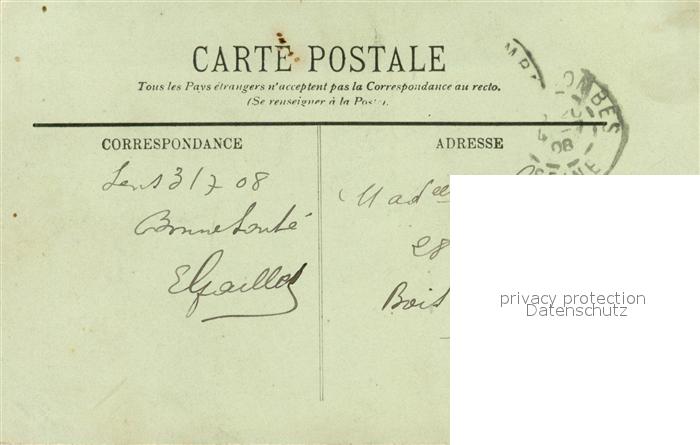 CARTE POSTALE
Tous les Pays étrangers n'acceptent pas la Correspondance au recto.
(Se renseigner à la Poste).
CORRESPONDANCE
Sens 3/7 08
Bonne Santé
E Gaillot
ADRESSE
Madelle
28
Bois
OMBES
08
SEINE
privacy protection
Datenschutz